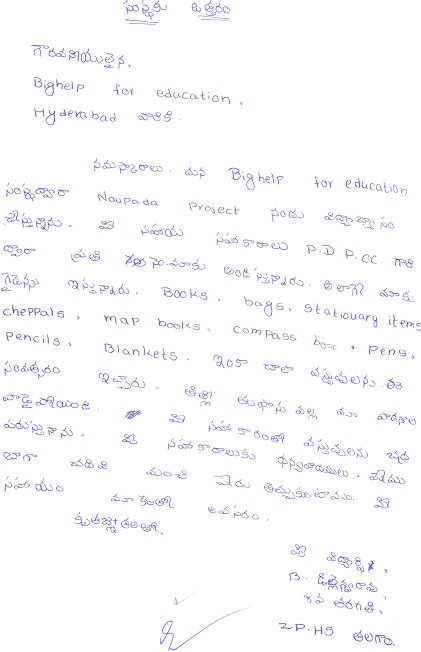 సంస్థకు ఉత్తరం
గౌరవనీయులైన,
Bighelp for education,
Hyderabad వారికి.
నమస్కారాలు. మన Bighelp for education
సంస్థద్వారా Naupada Project నందు విద్యాభ్యాసం
చేస్తున్నాను. మీ సహాయ సహకారాలు P.D P.CC. గారి
ద్వారా ప్రతి సం. మాకు అందిస్తున్నారు. అలాగే మాకు
గైడెన్సు ఇస్తున్నారు. Books, bags, stationary items
cheppals, map books, compass box, pens,
pencils, Blankets. ఇంకా చాలా వస్తువులను ఈ
సంవత్సరం ఇచ్చారు. తిత్లీ తుఫాను వల్ల మా పాఠశాల
పాడైపోయింది. మీ సహకారంతో వస్తువులను భద్ర
పరుస్తున్నాను. మీ సహకారాలకు ధన్యవాదములు. మేము
బాగా చదివి మంచి పేరు తెచ్చుకుంటాము. మీ
సహాయం మాకెంతో అవసరం.
కృతజ్ఞతలతో,
మీ విద్యార్థి,
B. ఢిల్లేశ్వరావు,
తరగతి,
Z.P.HS తలగాం.